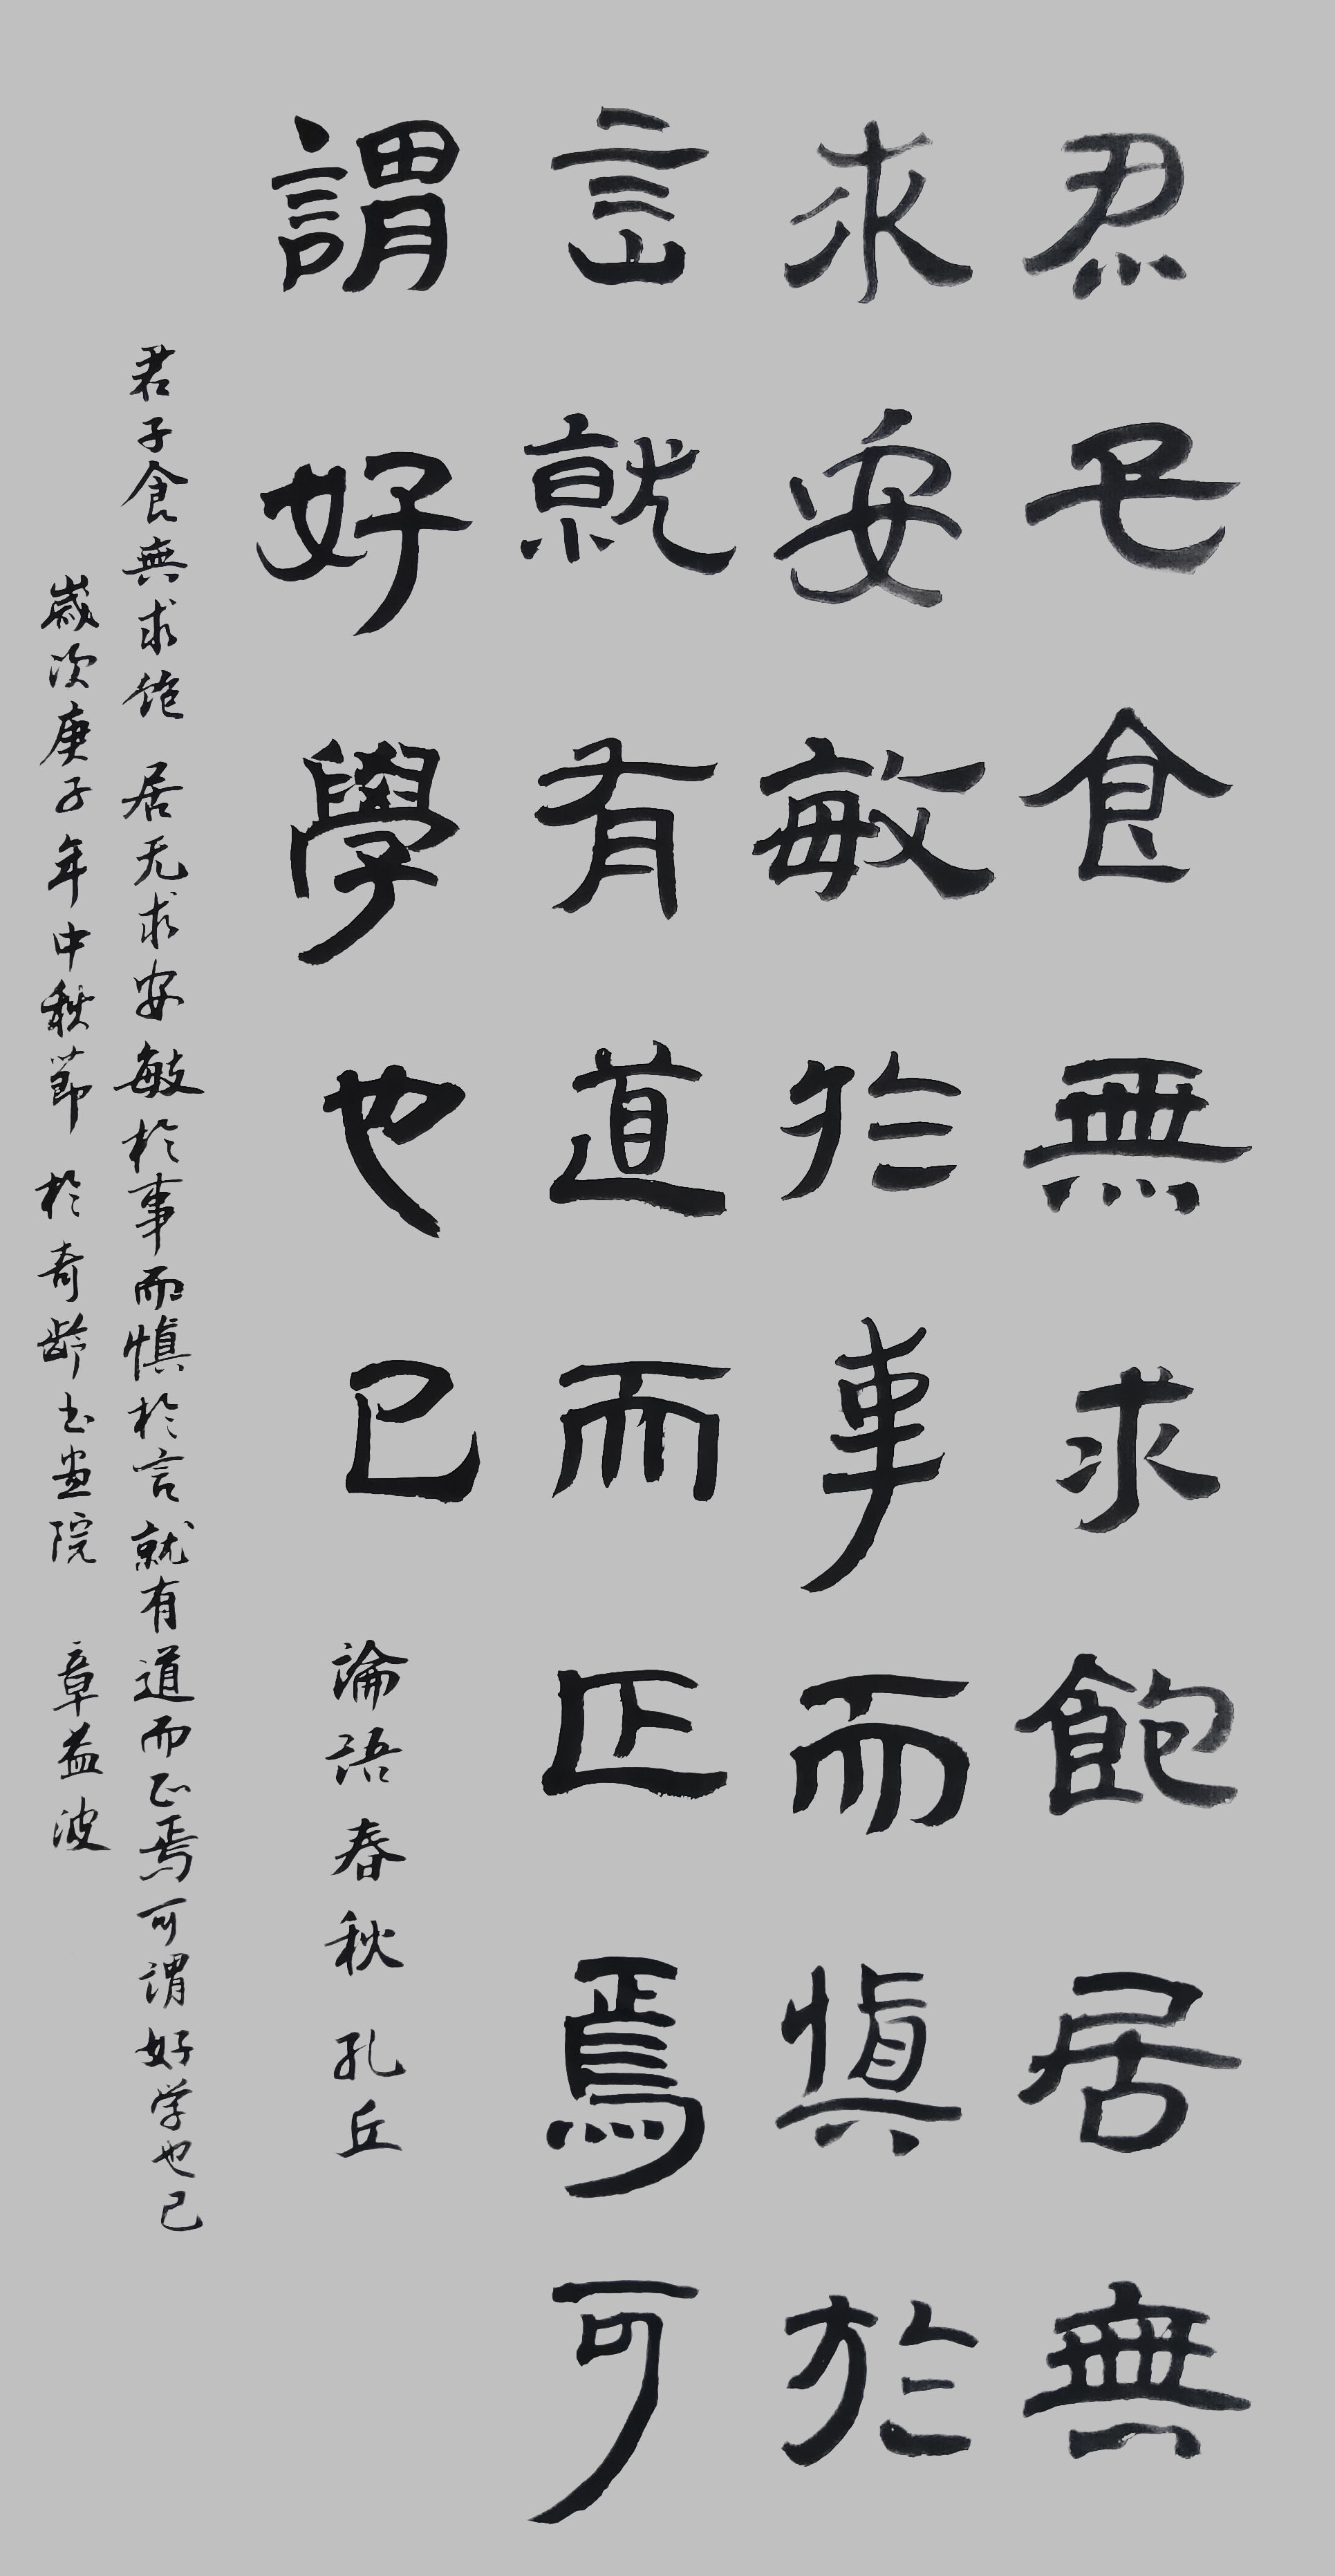 君子食無求飽居無
求安敏於事而慎於
言就有道而正焉可
謂好學也已
論語春秋孔丘
君子食無求飽 居无求安敏於事而慎於言就有道而正焉可謂好学也已
歲次庚子年中秋節 於奇齡书画院 章益波